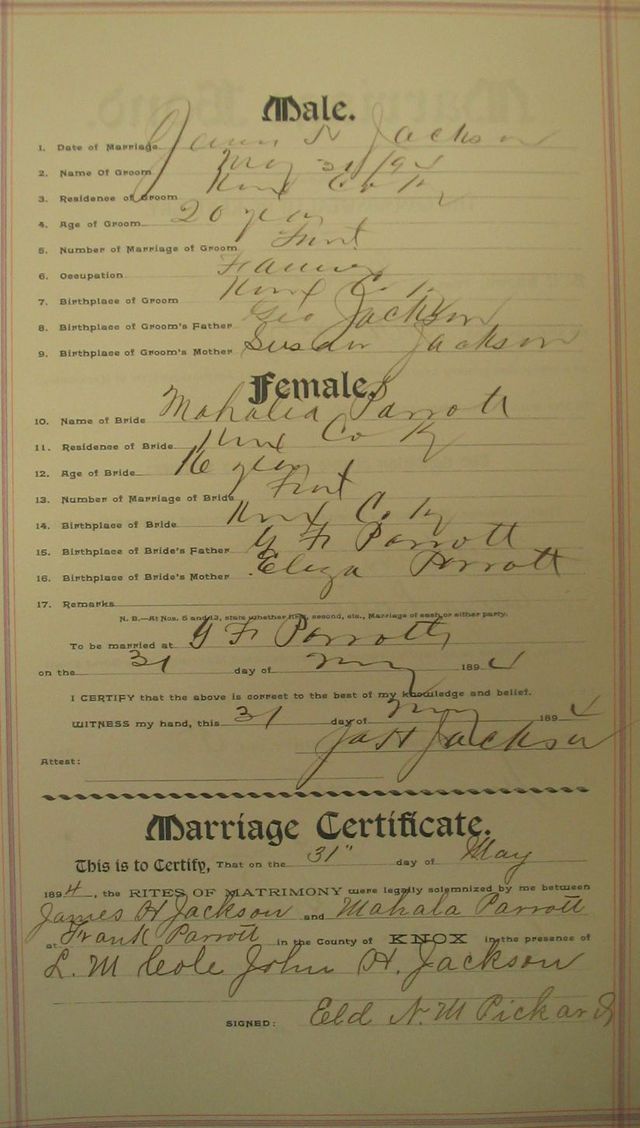 Male.
James H Jackson
1. Date of Marriage May 31/94
2. Name Of Groom Knox Co Ky
3. Residence of Groom
4. Age of Groom 20 years
5. Number of Marriage of Groom First
6. Occupation Farmer
7. Birthplace of Groom Knox Co Ky
8. Birthplace of Groom's Father Geo Jackson
9. Birthplace of Groom's Mother Susan Jackson
Female.
10. Name of Bride Mahalia Parrott
11. Residence of Bride Knox Co Ky
12. Age of Bride 16 years
13. Number of Marriage of Bride First
14. Birthplace of Bride Knox Co Ky
15. Birthplace of Bride's Father G F Parrott
16. Birthplace of Bride's Mother Eliza Parrott
17. Remarks
N. B.—At Nos. 5 and 13, state whether first, second, etc., Marriage of each or either party.
To be married at G F Parrotts
on the 31 day of May 1894
I CERTIFY that the above is correct to the best of my knowledge and belief.
WITNESS my hand, this 31 day of May 1894
Jas H Jackson
Attest:
Marriage Certificate.
This is to Certify, That on the 31" day of May
1894, the RITES OF MATRIMONY were legally solemnized by me between
James H Jackson and Mahala Parrott
at Frank Parrott in the County of KNOX in the presence of
L. M Cole John H. Jackson
SIGNED: Eld N. M Pickard